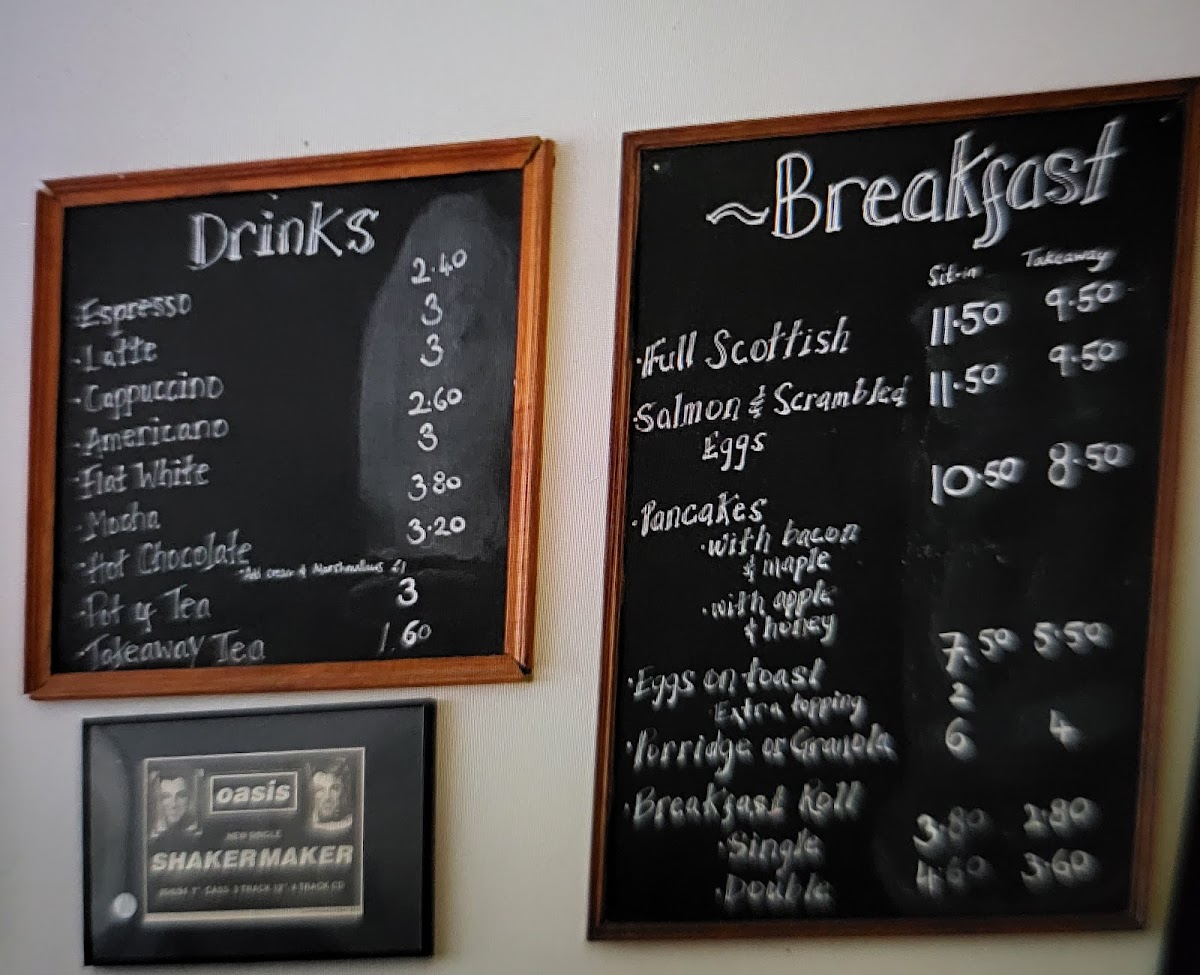 Drinks
· Espresso 2.40
· Latte 3
· Cappuccino 3
· Americano 2.60
· Flat White 3
· Mocha 3.80
· Hot Chocolate 3.20
*Add cream & Marshmallows £1
· Pot of Tea 3
· Takeaway Tea 1.60
~Breakfast
Sit-in Takeaway
· Full Scottish 11.50 9.50
· Salmon & Scrambled 11.50 9.50
Eggs
· Pancakes 10.50 8.50
· with bacon
& maple
· with apple
& honey
· Eggs on toast 7.50 5.50
Extra topping 2
· Porridge or Granola 6 4
· Breakfast Roll
· Single 3.80 2.80
· Double 4.60 3.60
oasis
NEW SINGLE
SHAKERMAKER
7" CASS 3 TRACK 12" 4 TRACK CD